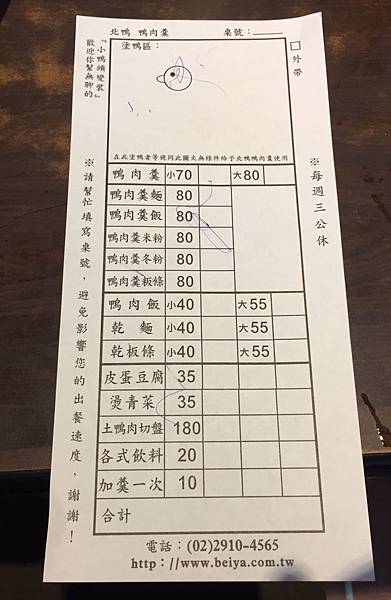 北鴨 鴨肉羹 桌號：
塗鴨區：
□外帶
『小鴨頭變裝』
歡迎你幫無聊的
在此塗鴨者等視同此圖文無條件給予北鴨鴨肉羹使用
※每週三公休
※請幫忙填寫桌號，避免影響您的出餐速度，謝謝！
鴨肉羹 小70 大80
鴨肉羹麵 80
鴨肉羹飯 80
鴨肉羹米粉 80
鴨肉羹冬粉 80
鴨肉羹板條 80
鴨肉飯 小40 大55
乾麵 小40 大55
乾板條 小40 大55
皮蛋豆腐 35
燙青菜 35
土鴨肉切盤 180
各式飲料 20
加羹一次 10
合計
電話：(02)2910-4565
http：//www.beiya.com.tw